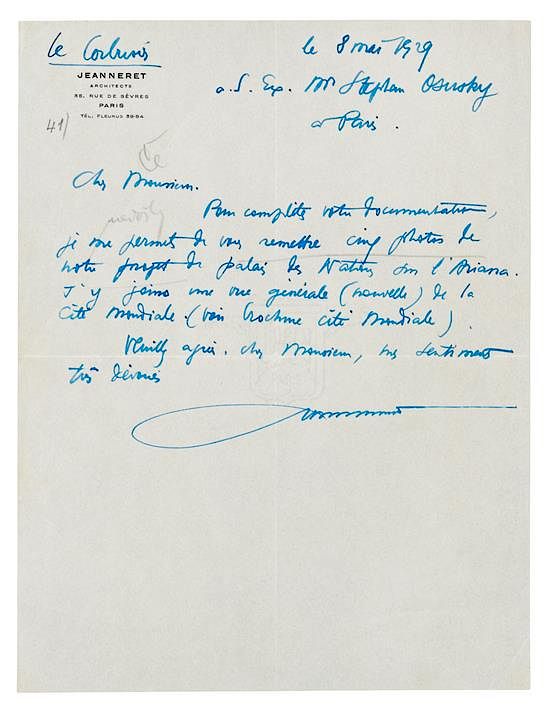 Le Corbusier
le 8 mai 1929
JEANNERET
ARCHITECTE
35, RUE DE SÈVRES
PARIS
TÉL. FLEURUS 39-84
a. S. Exp. Mr Stephan Osusky
à Paris.
41)
Cher Monsieur.
Pour compléter votre documentation,
je me permets de vous remettre cinq photos de
notre projet de palais des Nations sur l'Ariana.
J'y joins une vue générale (nouvelle) de la
Cité Mondiale. (voir brochure Cité Mondiale).
Veuillez agréer, cher Monsieur, mes sentiments
très dévoués